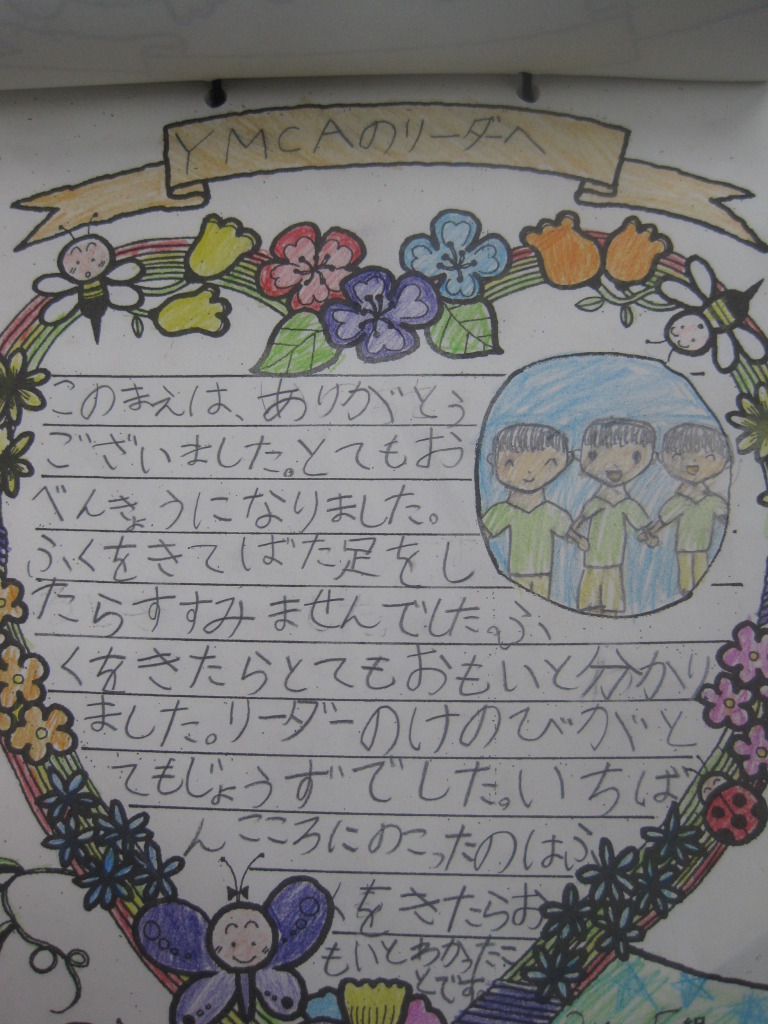 YMCAのリーダへ
このまえは、ありがとう
ございました。とてもお
べんきょうになりました。
ふくをきてばた足をし
たらすすみませんでした。ふ
くをきたらとてもおもいと分かり
ました。リーダーのけのびがと
てもじょうずでした。いちば
んこころにのこったのはふ
くをきたらお
もいとわかったこ
とです。